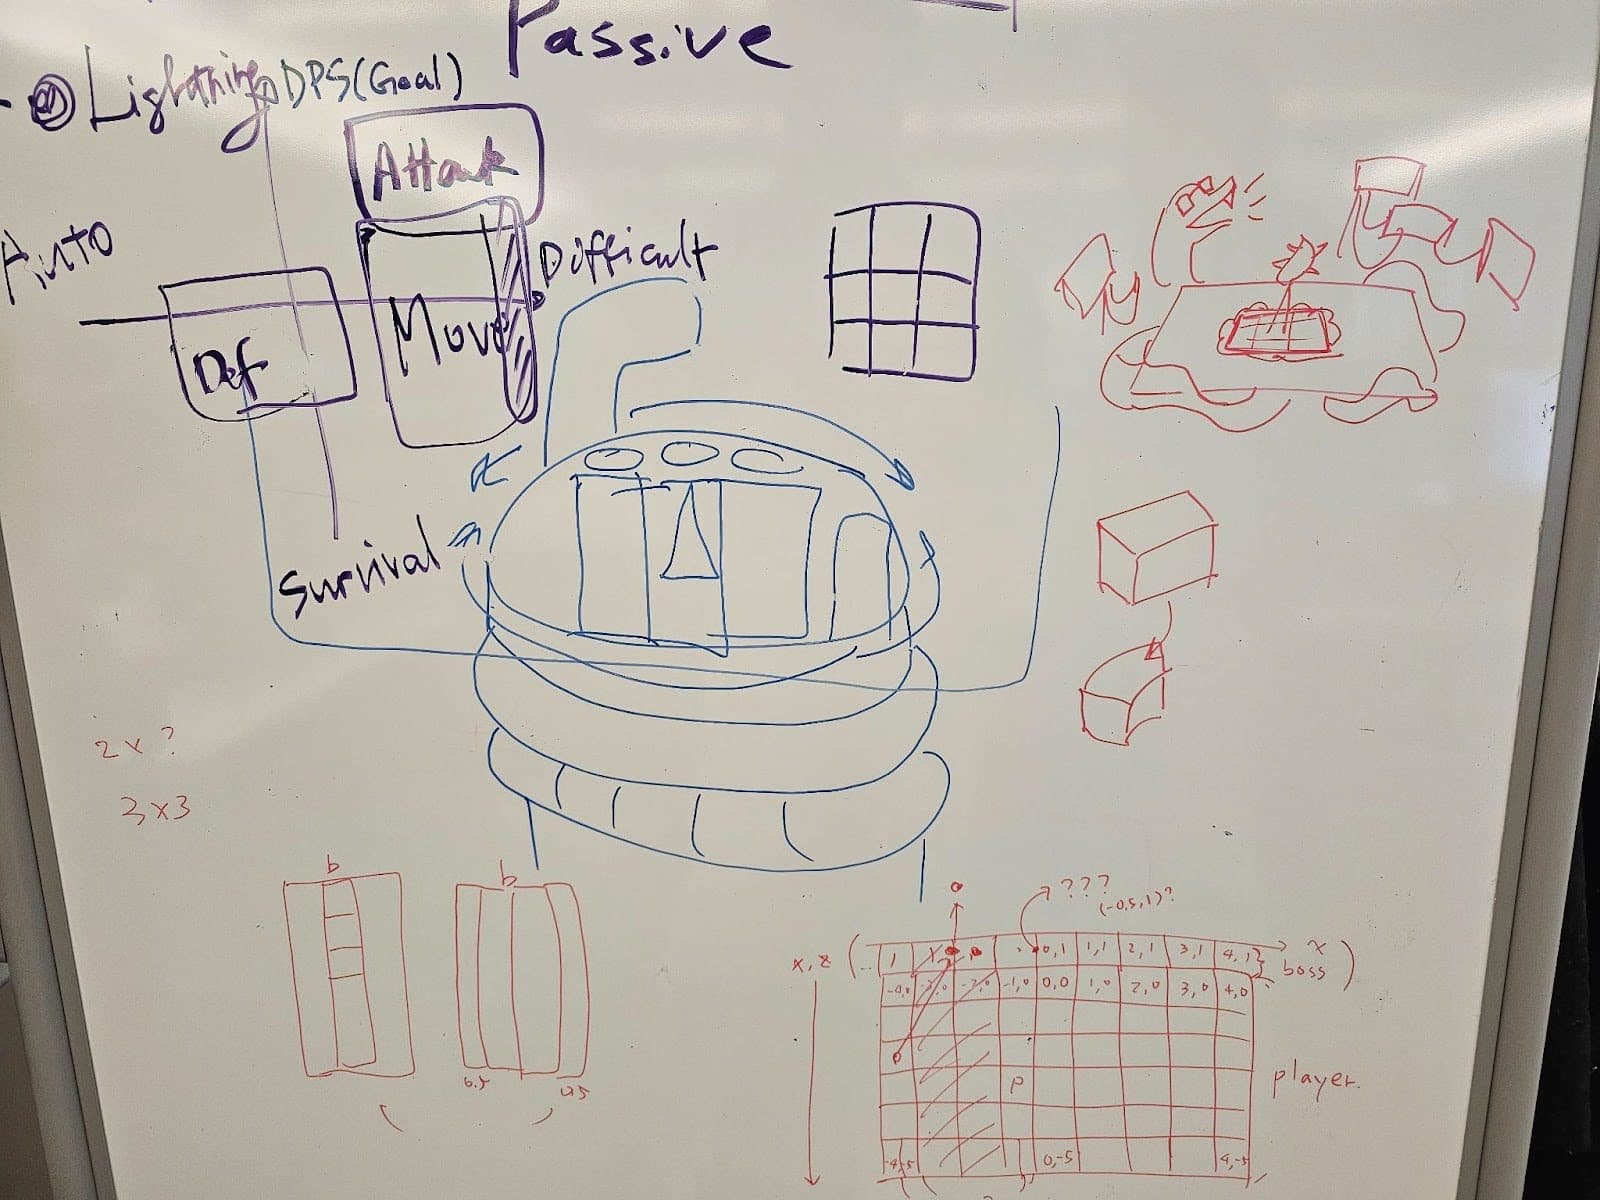 Passive
Lightning DPS(Goal)
Attack
Auto
Difficult
Def
Move
Survival
2 x ?
3x3
b
b
0.5
0.5
???
(-0.5,1)?
x, z
1
0,1 1,1 2,1 3,1 4,1
x
boss
-1,0 0,0 1,0 2,0 3,0 4,0
p
player.
-4,-5 0,-5 4,-5